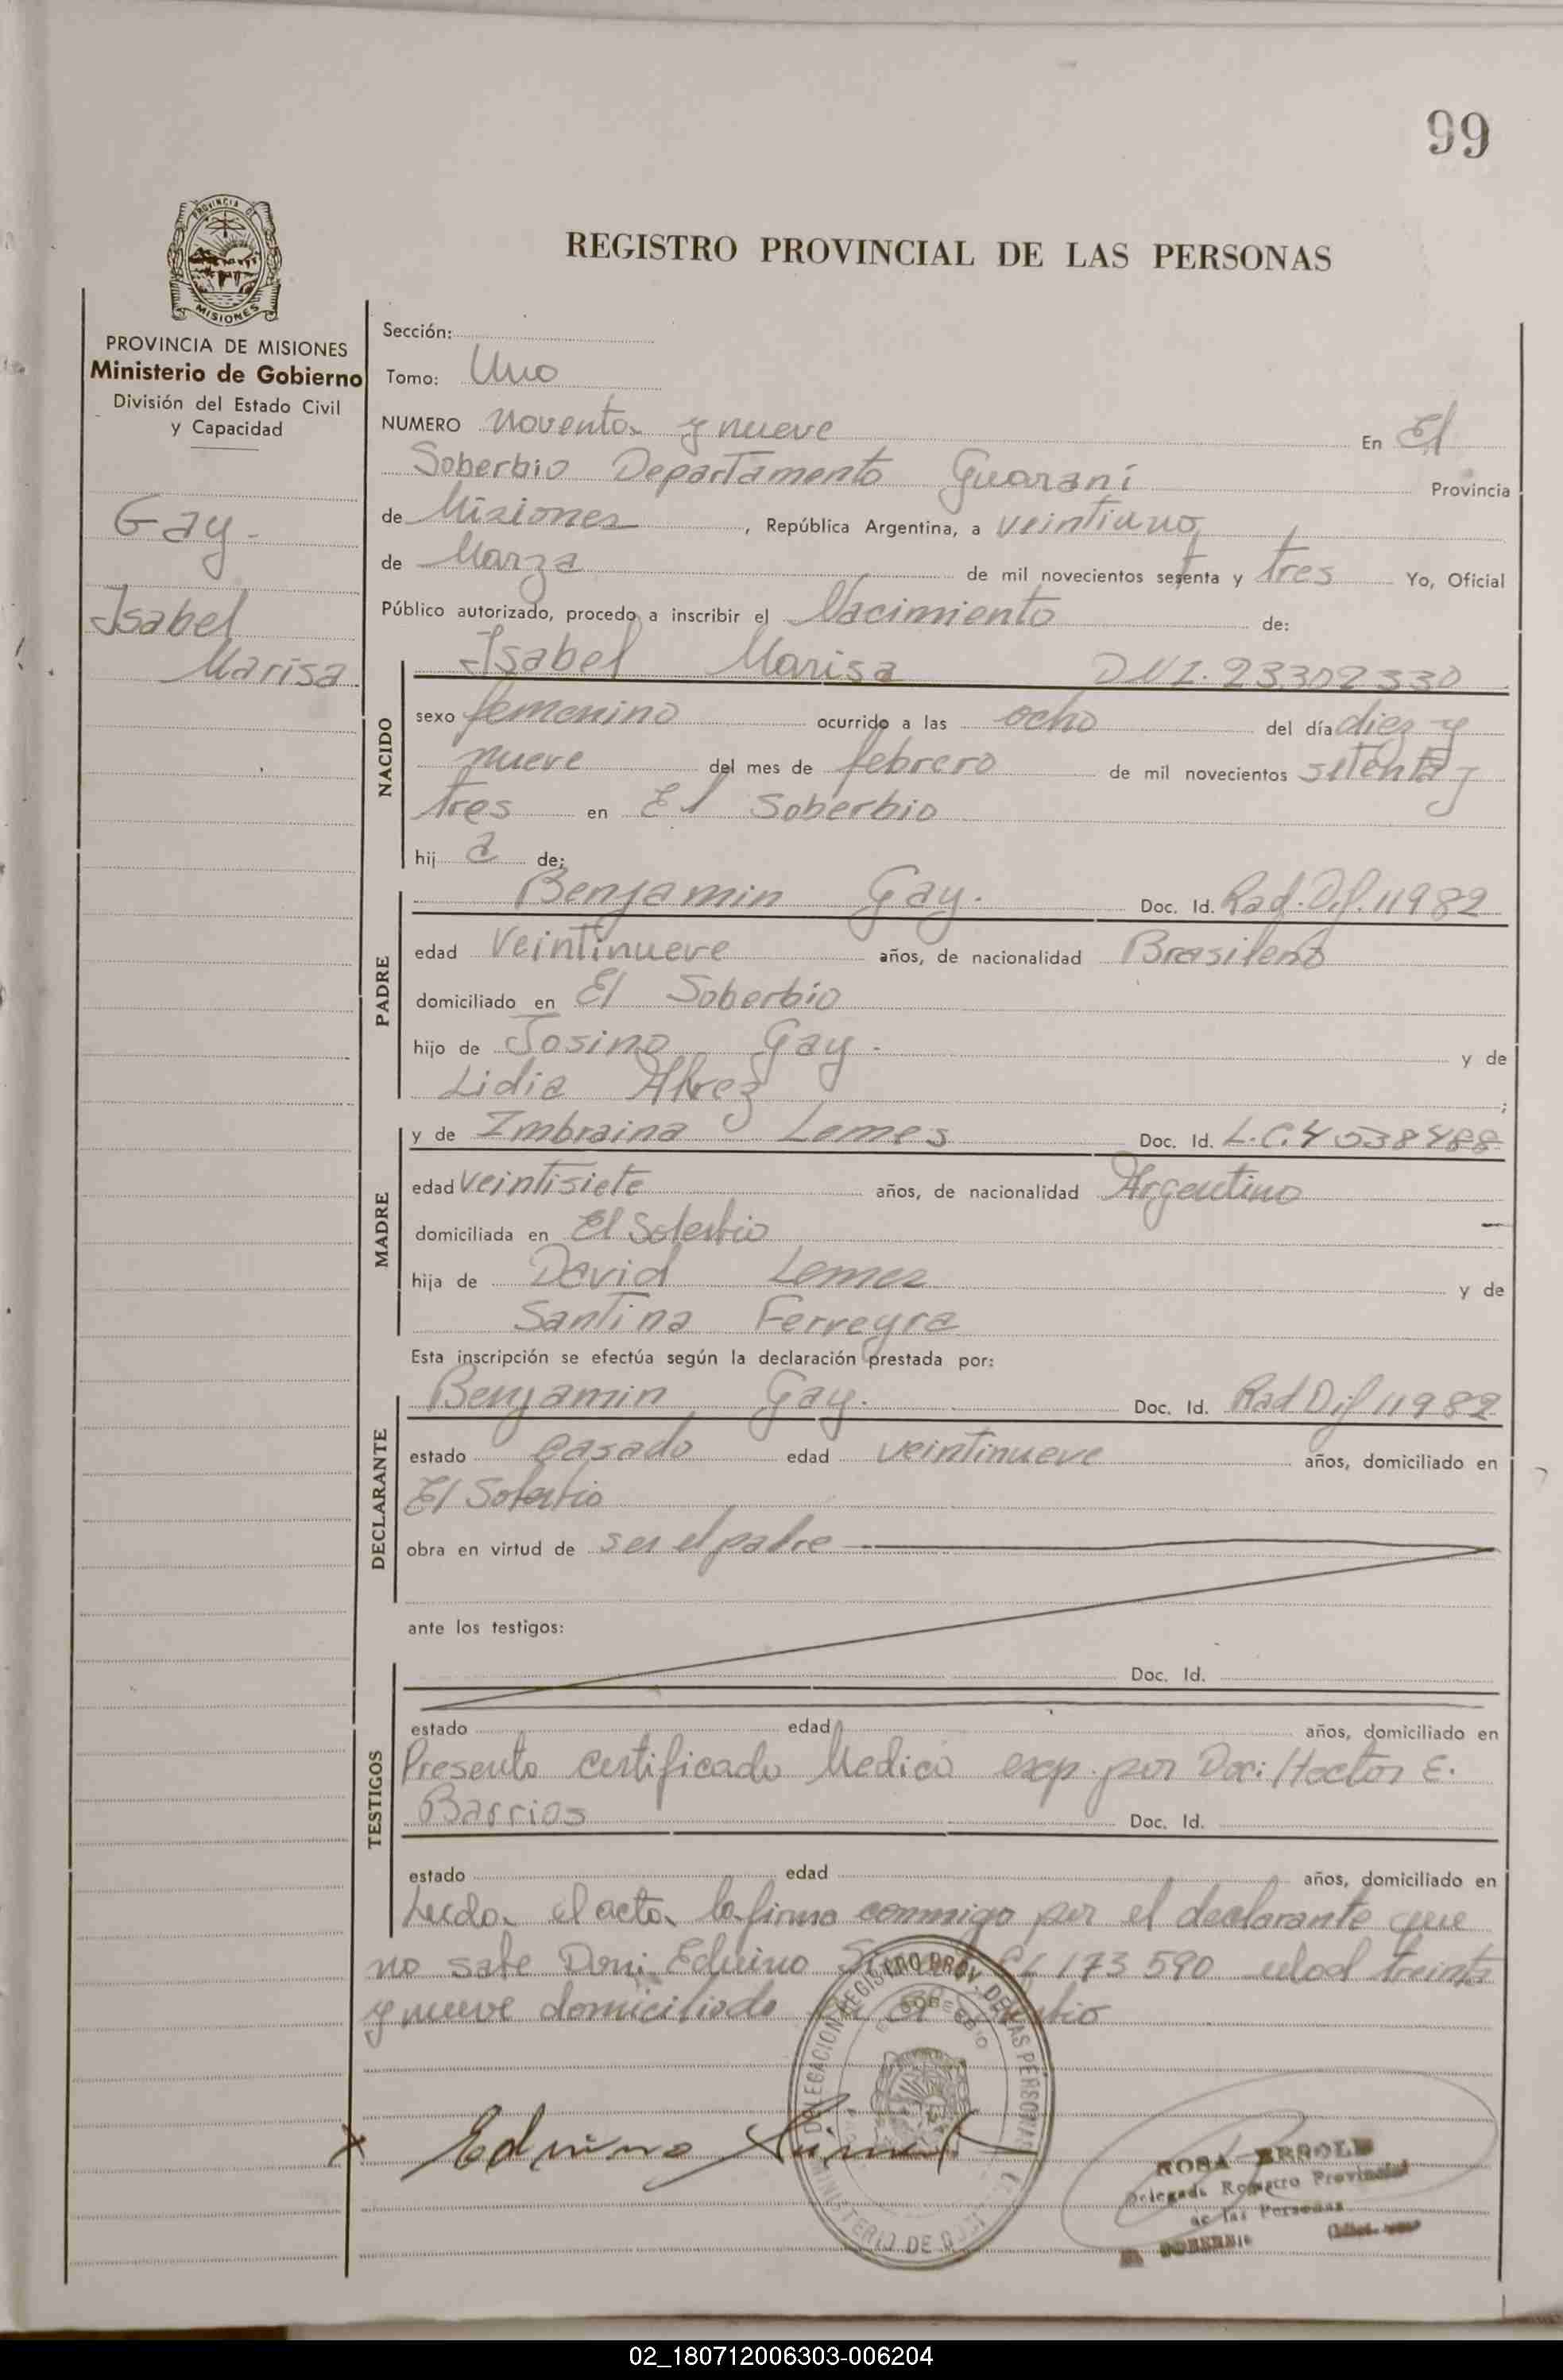 99
PROVINCIA DE
MISIONES
REGISTRO PROVINCIAL DE LAS PERSONAS
PROVINCIA DE MISIONES
Ministerio de Gobierno
División del Estado Civil
y Capacidad
Gay.
Isabel
Marisa
Sección:
Tomo: Uno
NUMERO noventa y nueve En El
Soberbio Departamento Guaraní Provincia
de Misiones, República Argentina, a veintiuno
de Marzo de mil novecientos setenta y tres Yo, Oficial
Público autorizado, procedo a inscribir el Nacimiento de:
NACIDO
Isabel Marisa DNI. 23.302330
sexo femenino ocurrido a las ocho del día diez y
nueve del mes de febrero de mil novecientos setenta y
tres en El Soberbio
hij a de;
PADRE
Benjamin Gay. Doc. Id. Rad. Dif. 11982
edad Veintinueve años, de nacionalidad Brasileño
domiciliado en El Soberbio
hijo de Josino Gay - y de
Lidia Alvez ;
MADRE
y de Imbraina Lemes Doc. Id. L.C. 4538488
edad veintisiete años, de nacionalidad Argentino
domiciliada en El Soberbio
hija de David Lemes y de
Santina Ferreyra
Esta inscripción se efectúa según la declaración prestada por:
DECLARANTE
Benjamin Gay. Doc. Id. Rad Dif 11982
estado casado edad veintinueve años, domiciliado en
El Soberbio
obra en virtud de ser el padre
ante los testigos:
TESTIGOS
Doc. Id.
estado edad años, domiciliado en
Presento certificado Medico exp. por Doc: Hector E.
Barrios Doc. Id.
estado edad años, domiciliado en
Leida el acta la firma conmigo por el declarante que
no sabe Don: Eduino CI 173 590 edad treinta
y nueve domiciliado El Soberbio
DELEGACION REGISTRO PROV. DE LAS PERSONAS
EL SOBERBIO
MINISTERIO DE
x Eduino
ROSA
Delegada Registro Provincial
de las Personas
EL SOBERBIO
02_180712006303-006204